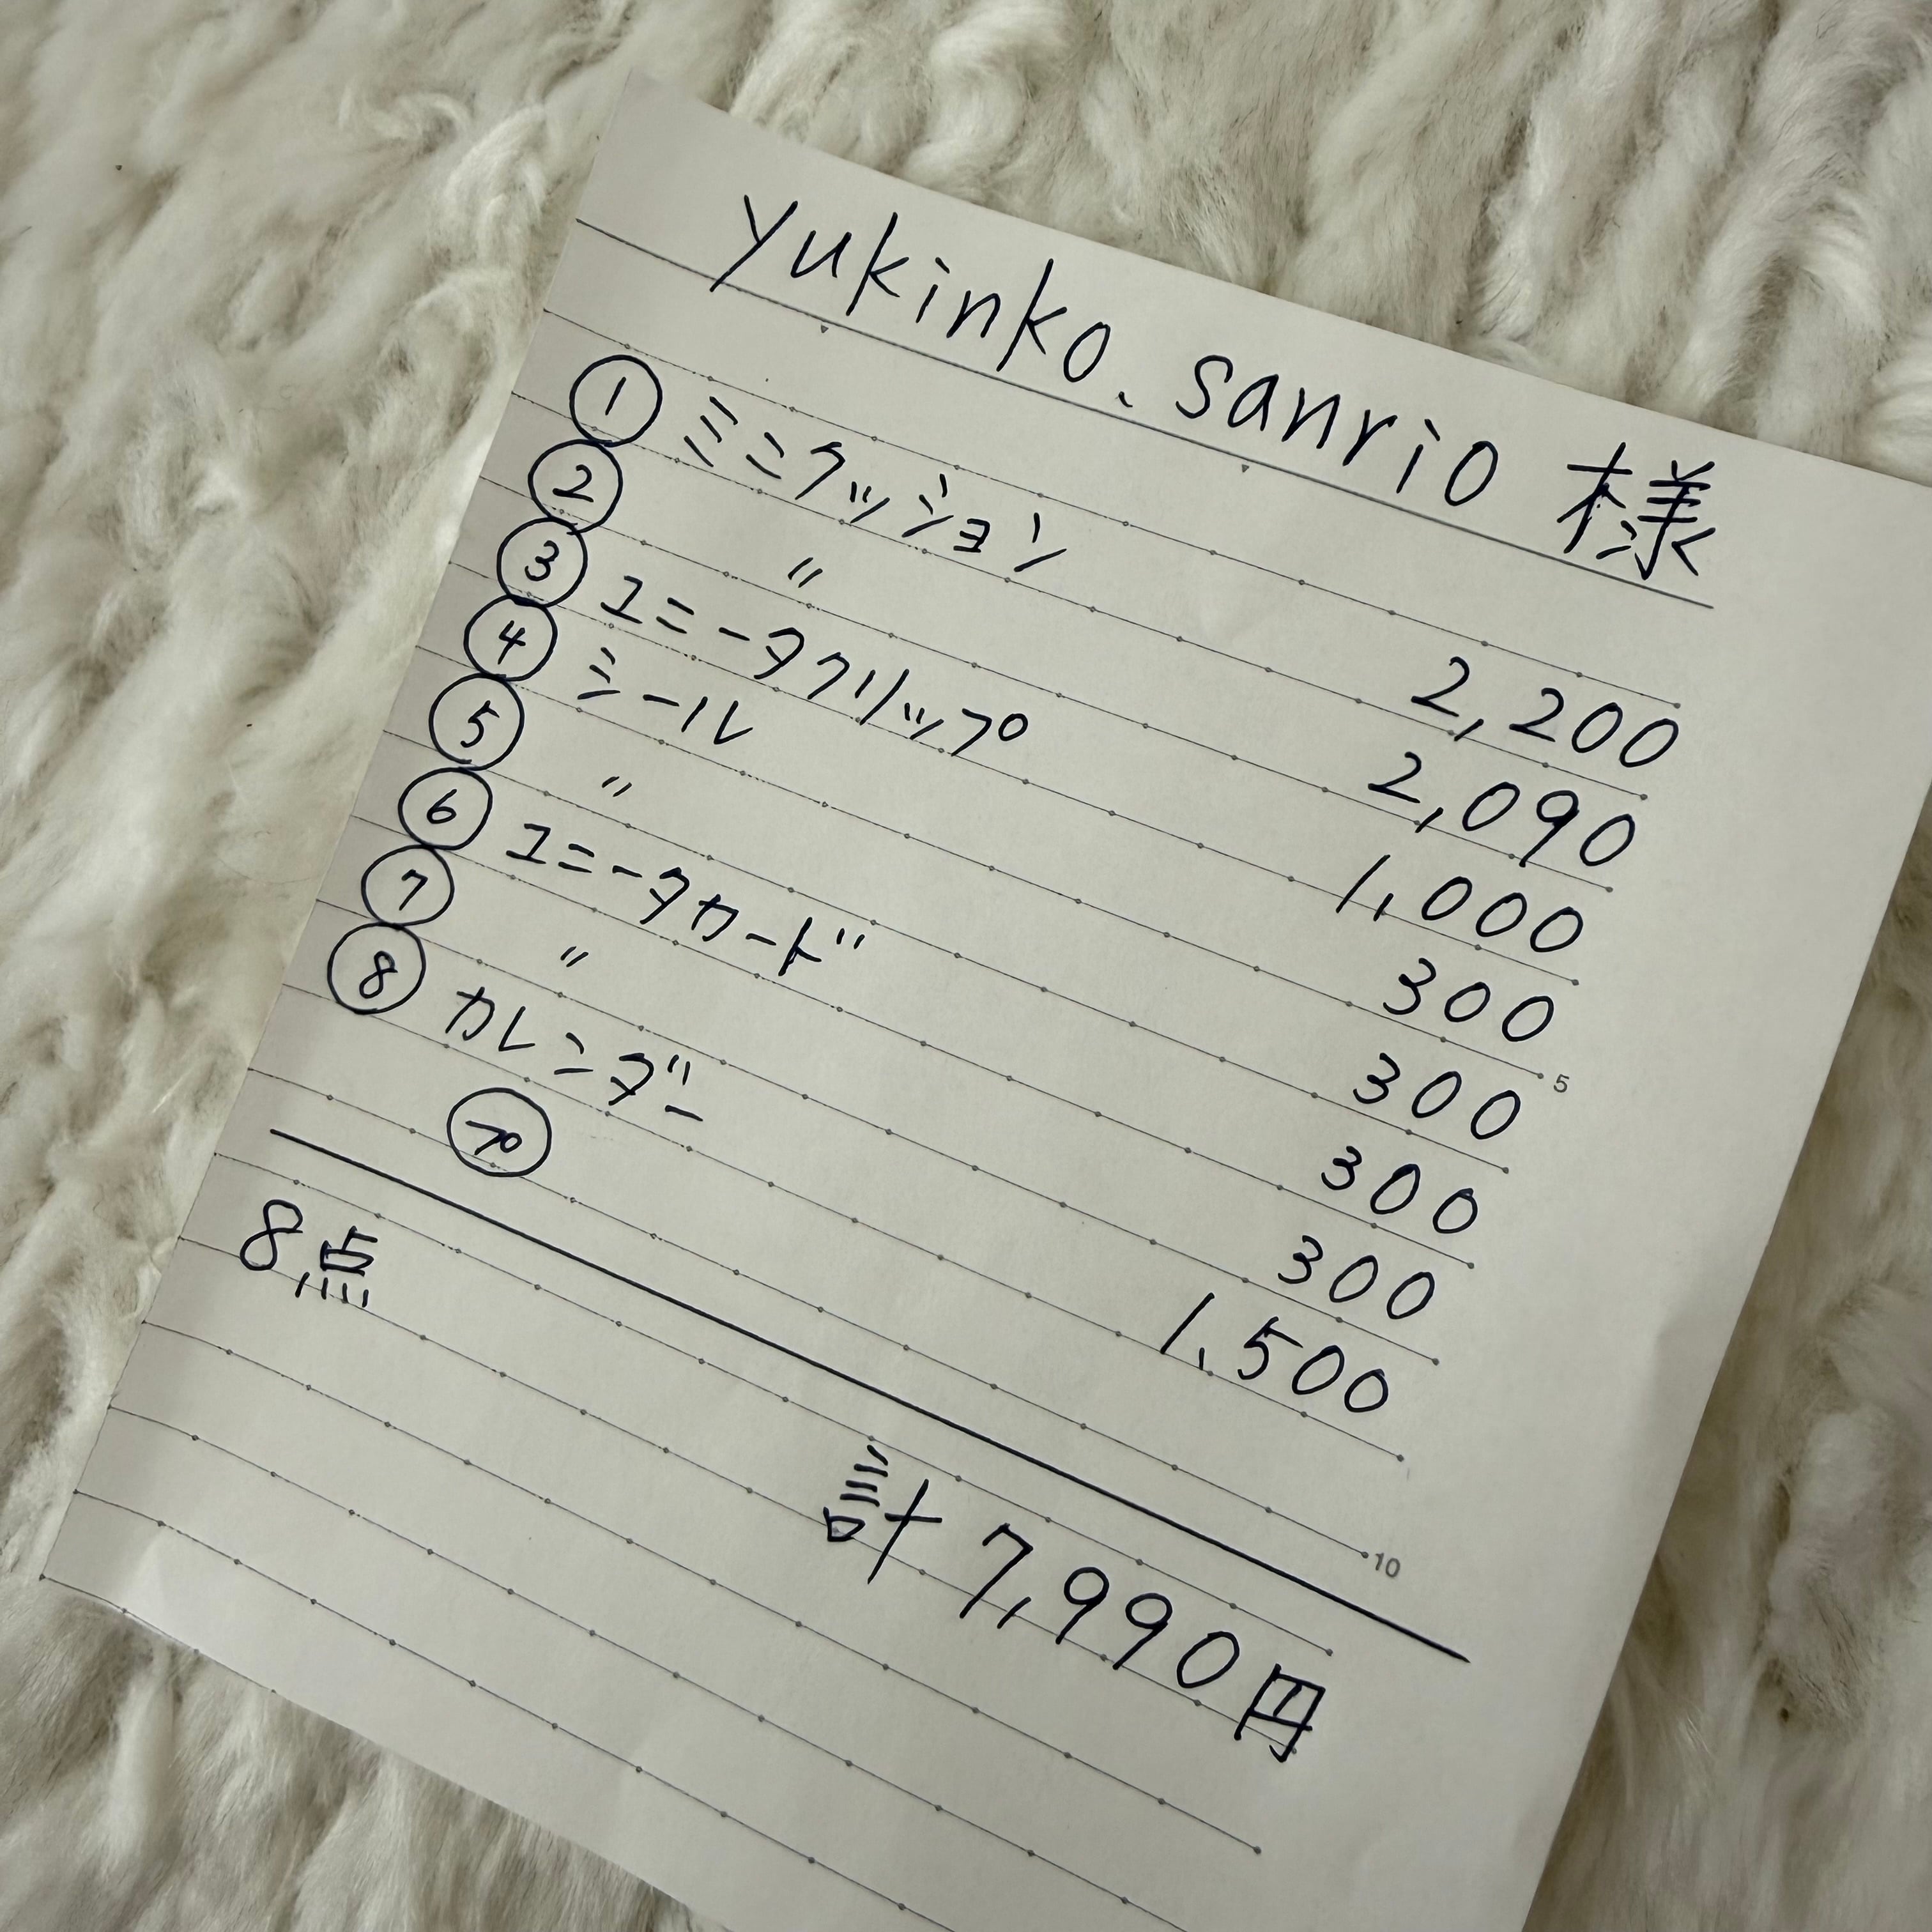 yukinko.sanrio 様
① ミニクッション 2,200
② 〃 2,090
③ ユニータクリップ 1,000
④ シール 300
⑤ 〃 300
⑥ ユニータカード 300
⑦ 〃 300
⑧ カレンダー 1,500
プ
8点
計 7,990円
5
10